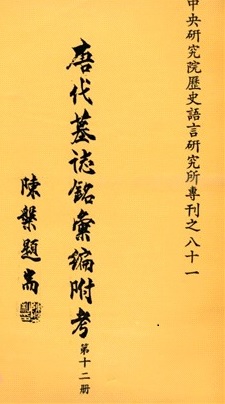 中央研究院歷史語言研究所專刊之八十一
唐代墓誌銘彙編附考
第十二冊
陳槃題耑